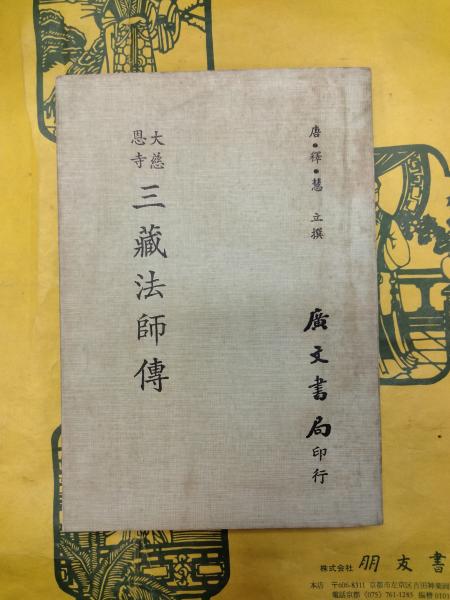 唐・釋・慧立撰
大慈
恩寺
三藏法師傳
廣文書局印行
株式会社 朋友書
本店 〒606-8311 京都市左京区吉田神楽岡
電話京都 (075) 761-1285 振替 0101